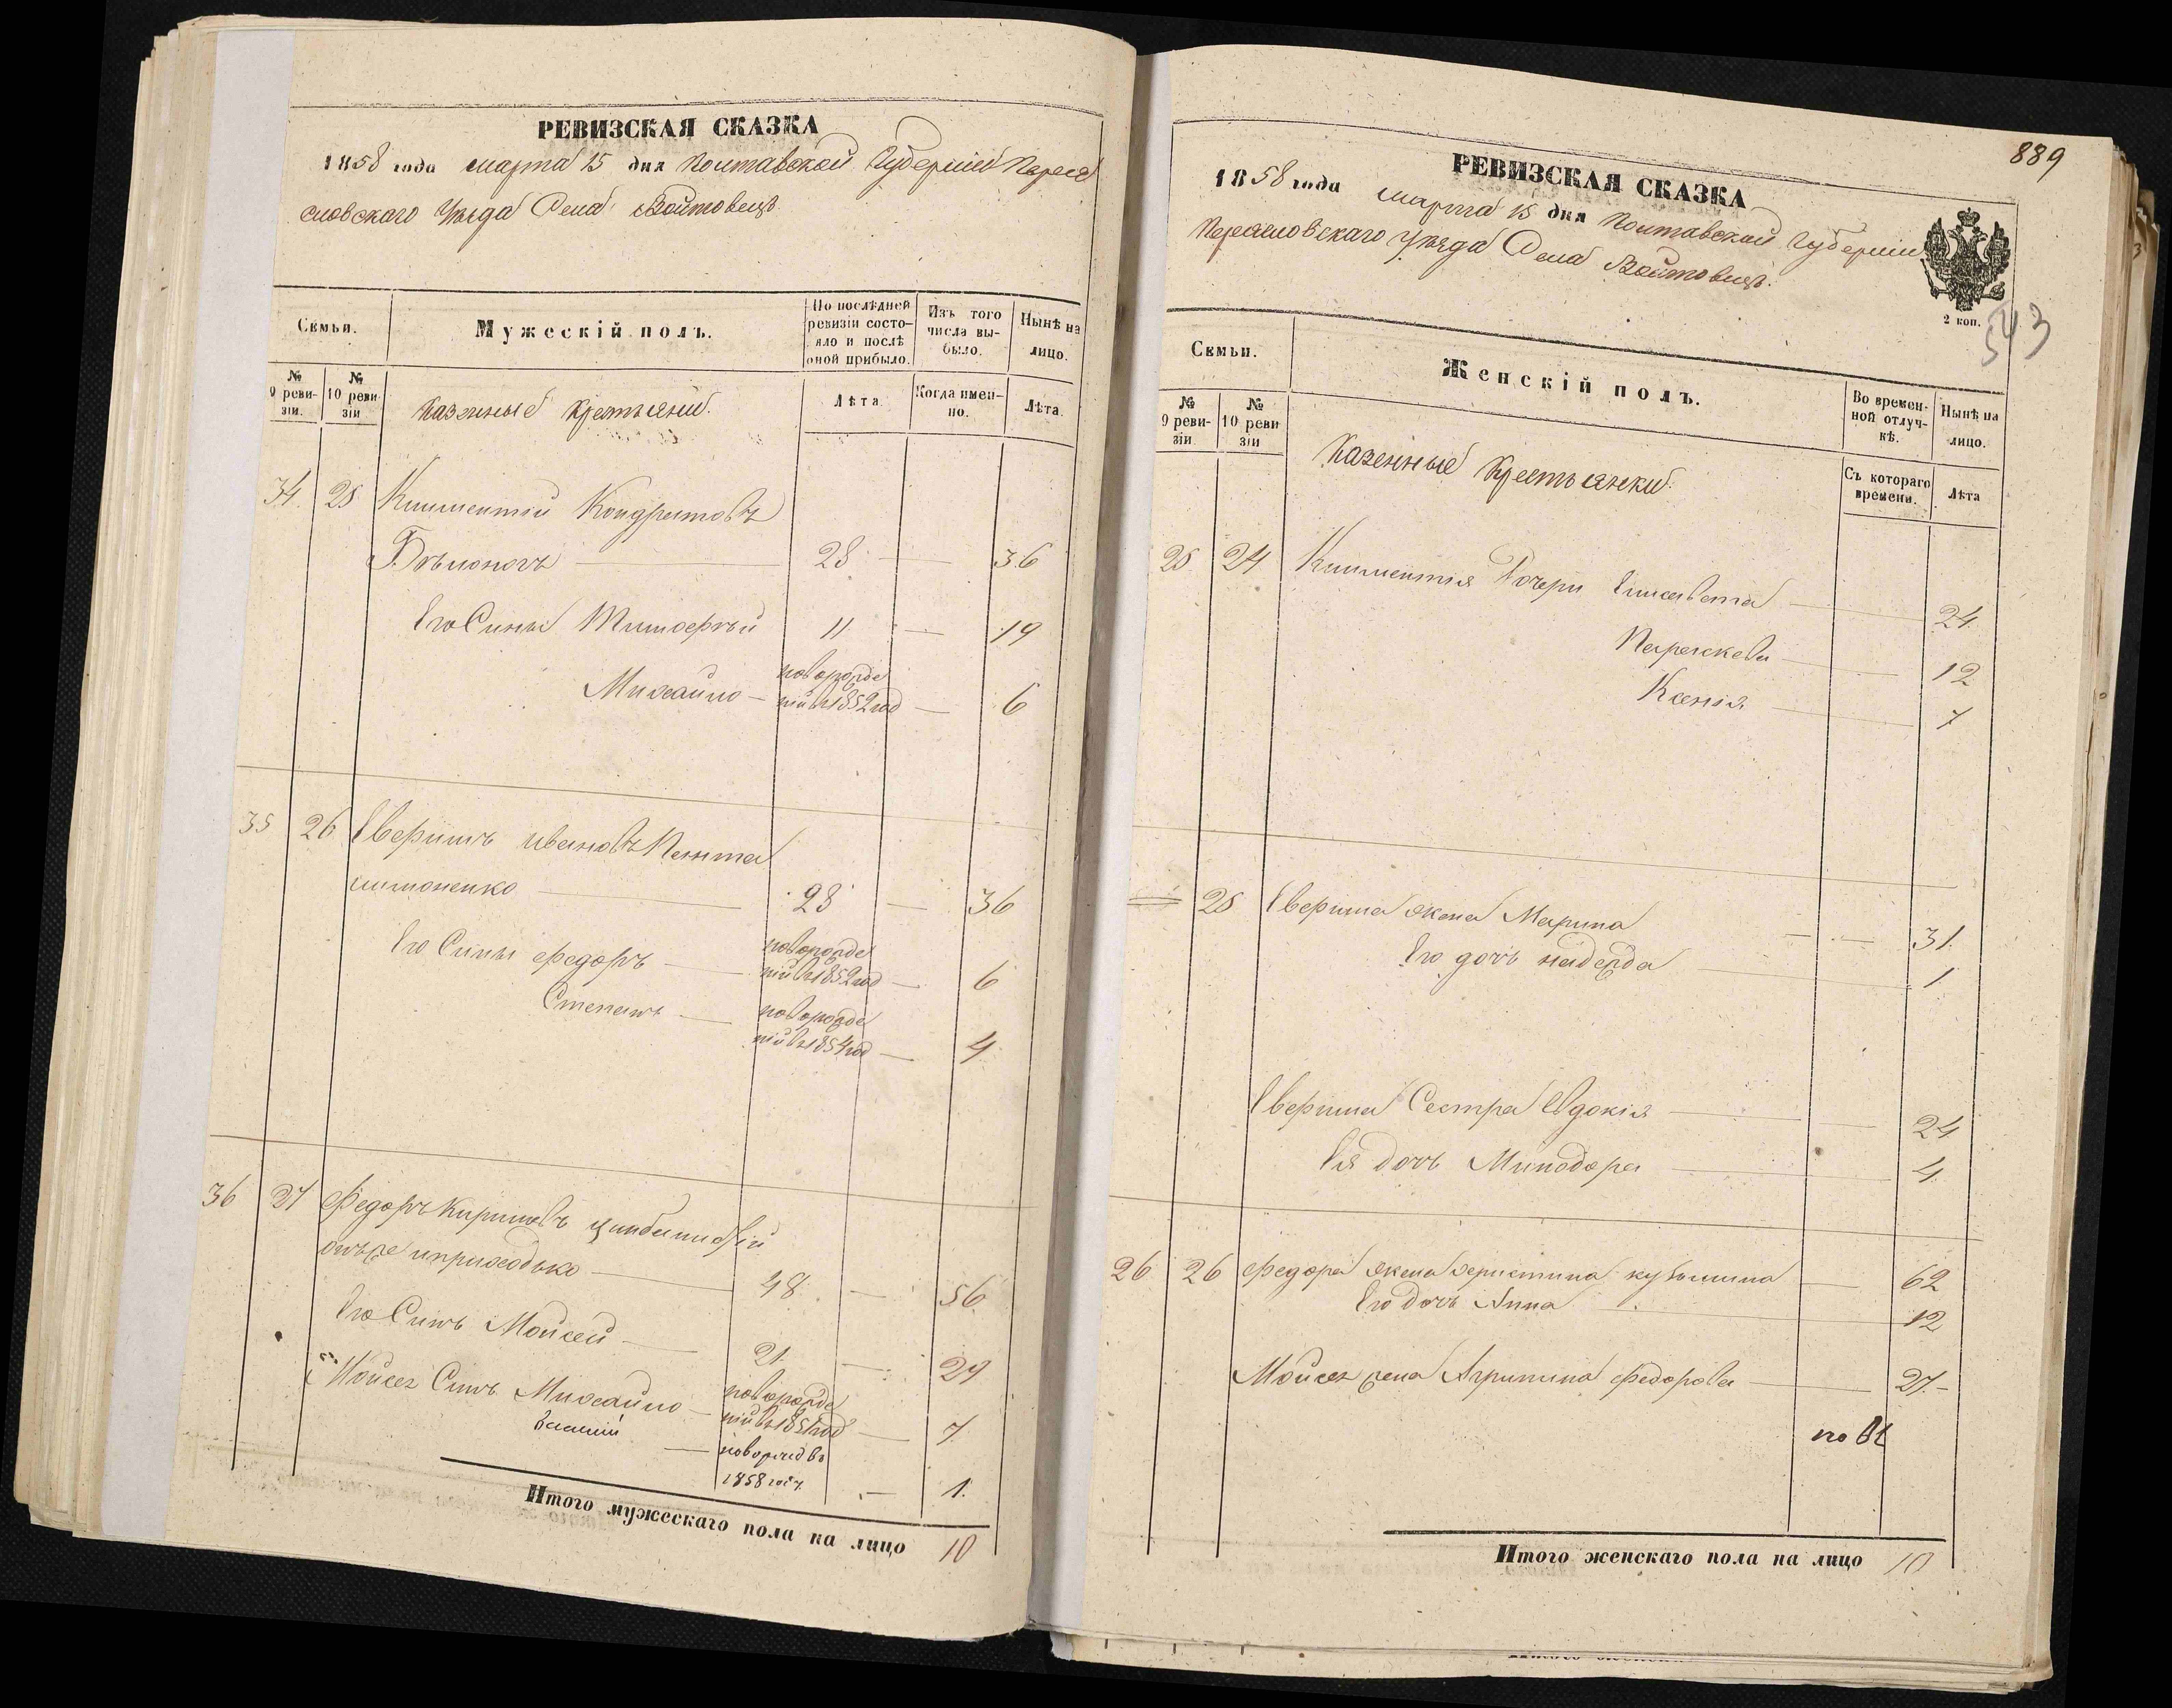 РЕВИЗСКАЯ СКАЗКА
1858 года марта 15 дня Полтавской Губернии Перея
словскаго Уезда Села Войтовецъ
Семьи.
Мужескій полъ.
По послѣдней ревизіи состояло и послѣ оной прибыло.
Изъ того числа выбыло.
Нынѣ на лицо.
№ 9 ревизіи.
№ 10 ревизіи
Казенные крестьяни.
Лѣта
Когда именно.
Лѣта.
34 25 Климентій Кондратовъ
28 — 36
Его Сины Тимофтый 11 — 19
Михайло — новорожде
ній въ 1852 год — 6
35 26 Еверимъ Ивановъ Панта
лимоненко 28 — 36
Его Сины Федоръ — новорожде
ній въ 1852 год — 6
Степанъ — новорожде
ній въ 1854 год — 4
36 27 Федоръ Кириловъ
онъ же иприходько 48 — 56
Его Синъ Мойсей 21 — 29
Мойсея Синъ Михайло — новорожде
ній въ 1851 год — 7
Василій — новорожд въ
1858 году — 1
Итого мужескаго пола на лицо 10
889
РЕВИЗСКАЯ СКАЗКА
1858 года марта 15 дня Полтавской Губернии
Переясловскаго Уезда Села Войтовецъ.
2 коп.
543
Семьи.
Женскій полъ.
Во временной отлучкѣ.
Нынѣ на лицо.
№ 9 ревизіи
№ 10 ревизіи
Казенные Крестьянки
Съ котораго времени.
Лѣта
25 24 Климентія Дочери Елисавета — 24
Параскева — 12
Ксенія — 7
25 Еверима жена Марина — 31
Его дочь надежда — 1
Еверима Сестра Евдокія — 24
Ея дочь Минодора — 4
26 26 Федора жена христина кузьмина — 62
Его дочь Анна — 12
Мойсея жена Агрипина Федорова — 27
Итого женскаго пола на лицо 10